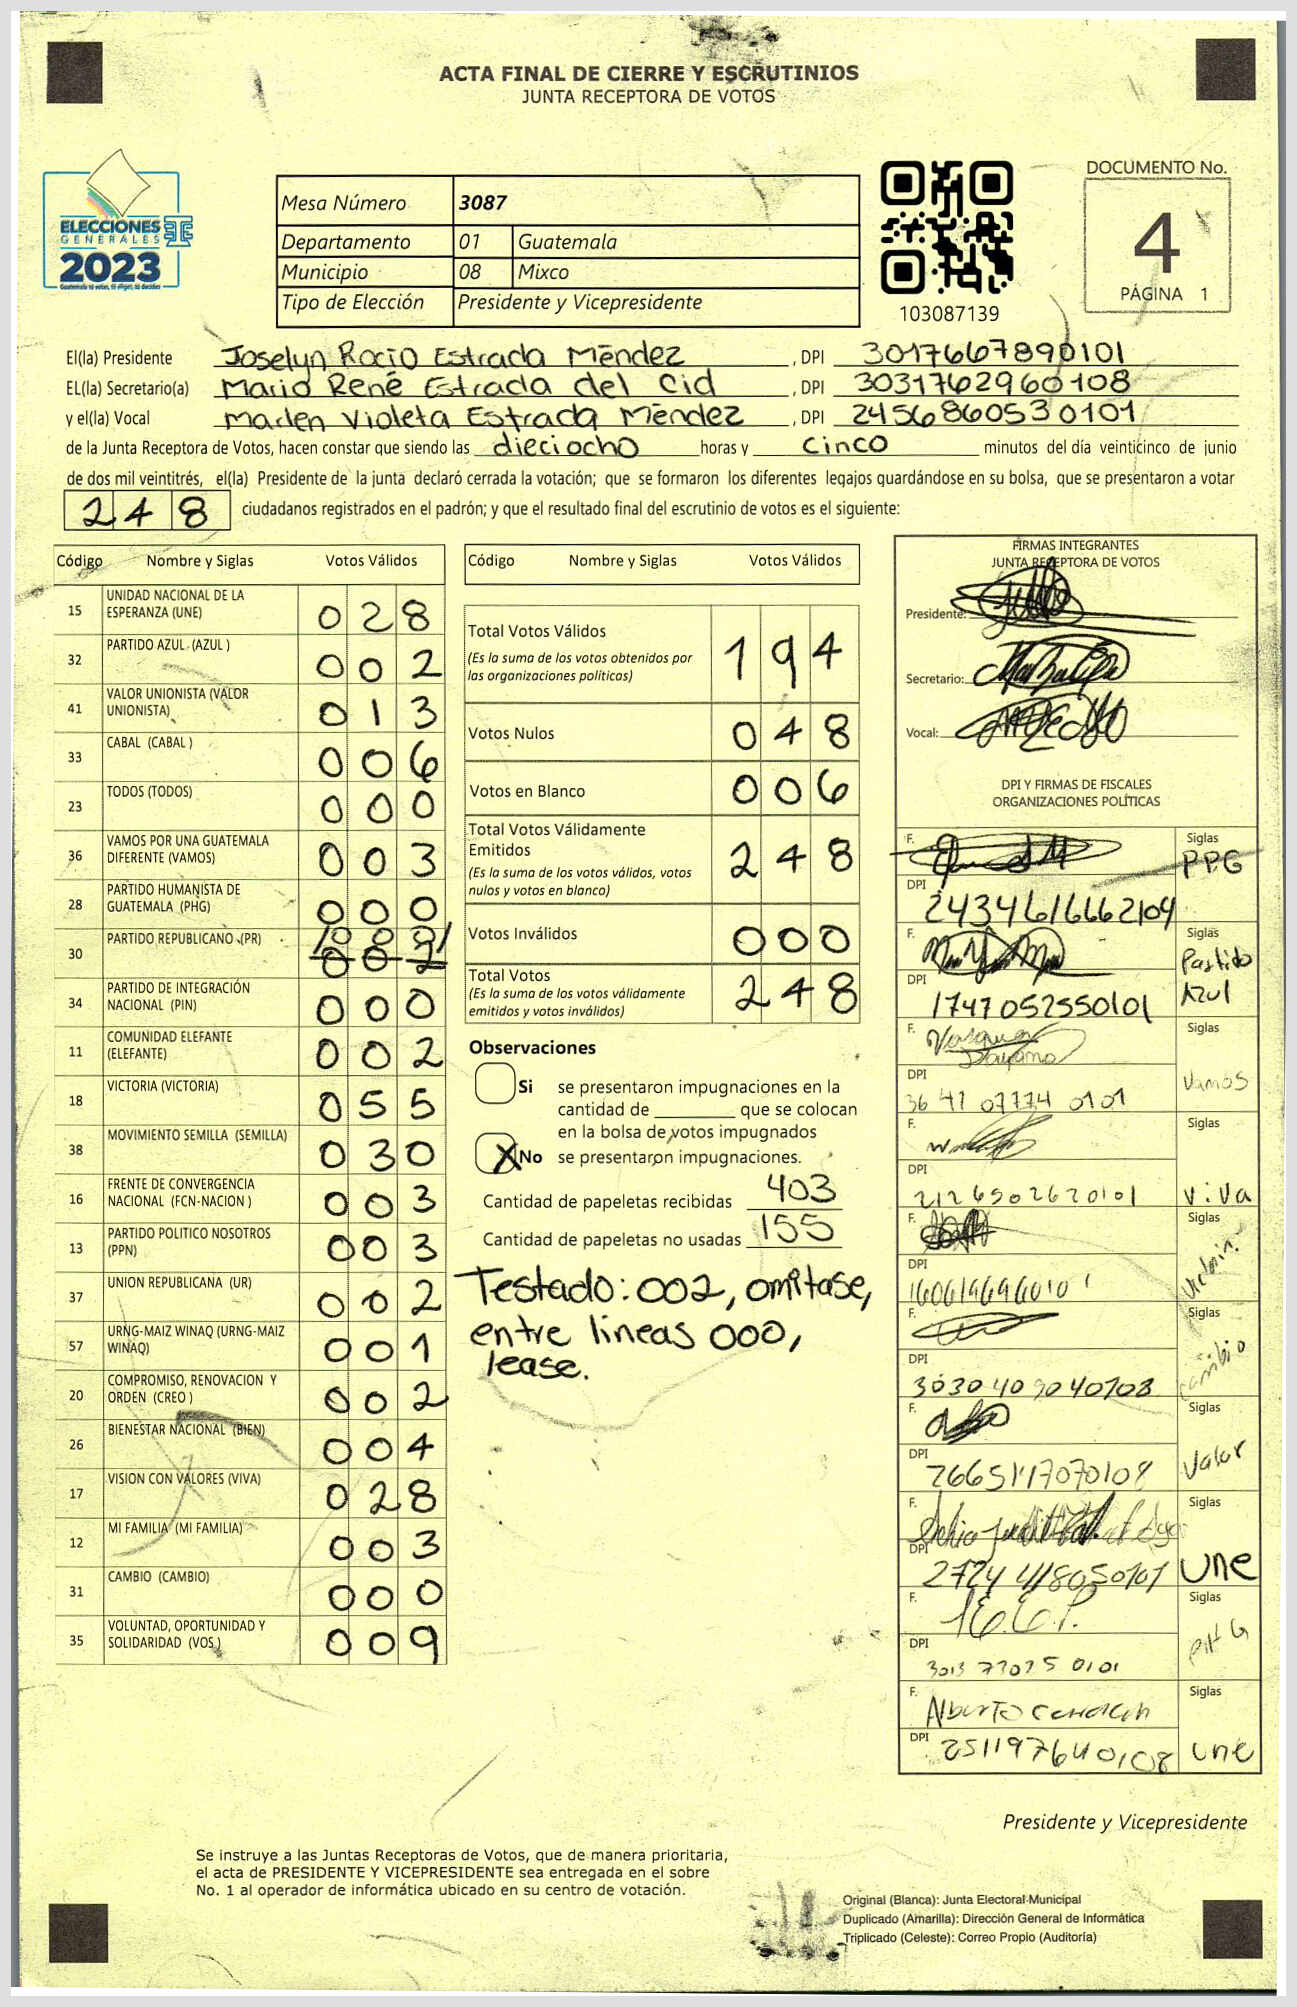 ACTA FINAL DE CIERRE Y ESCRUTINIOS
JUNTA RECEPTORA DE VOTOS
ELECCIONES
GENERALES
2023
Mesa Número 3087
Departamento 01 Guatemala
Municipio 08 Mixco
Tipo de Elección Presidente y Vicepresidente
103087139
DOCUMENTO No.
4
PÁGINA 1
El(la) Presidente Joselyn Rocío Estrada Méndez , DPI 3017667890101
EL(la) Secretario(a) Mario René Estrada del Cid , DPI 3031762960108
y el(la) Vocal Marlen Violeta Estrada Méndez , DPI 2456860530101
de la Junta Receptora de Votos, hacen constar que siendo las dieciocho horas y cinco minutos del día veinticinco de junio
de dos mil veintitrés, el(la) Presidente de la junta declaró cerrada la votación; que se formaron los diferentes legajos guardándose en su bolsa, que se presentaron a votar
248 ciudadanos registrados en el padrón; y que el resultado final del escrutinio de votos es el siguiente:
Código Nombre y Siglas Votos Válidos
15 UNIDAD NACIONAL DE LA ESPERANZA (UNE) 028
32 PARTIDO AZUL (AZUL ) 002
41 VALOR UNIONISTA (VALOR UNIONISTA) 013
33 CABAL (CABAL ) 006
23 TODOS (TODOS) 000
36 VAMOS POR UNA GUATEMALA DIFERENTE (VAMOS) 003
28 PARTIDO HUMANISTA DE GUATEMALA (PHG) 000
30 PARTIDO REPUBLICANO (PR) /000/ 002
34 PARTIDO DE INTEGRACIÓN NACIONAL (PIN) 000
11 COMUNIDAD ELEFANTE (ELEFANTE) 002
18 VICTORIA (VICTORIA) 055
38 MOVIMIENTO SEMILLA (SEMILLA) 030
16 FRENTE DE CONVERGENCIA NACIONAL (FCN-NACION ) 003
13 PARTIDO POLITICO NOSOTROS (PPN) 003
37 UNION REPUBLICANA (UR) 002
57 URNG-MAIZ WINAQ (URNG-MAIZ WINAQ) 001
20 COMPROMISO, RENOVACION Y ORDEN (CREO ) 002
26 BIENESTAR NACIONAL (BIEN) 004
17 VISION CON VALORES (VIVA) 028
12 MI FAMILIA (MI FAMILIA) 003
31 CAMBIO (CAMBIO) 000
35 VOLUNTAD, OPORTUNIDAD Y SOLIDARIDAD (VOS ) 009
Código Nombre y Siglas Votos Válidos
Total Votos Válidos 194
(Es la suma de los votos obtenidos por
las organizaciones políticas)
Votos Nulos 048
Votos en Blanco 006
Total Votos Válidamente
Emitidos 248
(Es la suma de los votos válidos, votos
nulos y votos en blanco)
Votos Inválidos 000
Total Votos 248
(Es la suma de los votos válidamente
emitidos y votos inválidos)
Observaciones
Si se presentaron impugnaciones en la
cantidad de ________ que se colocan
en la bolsa de votos impugnados
X No se presentaron impugnaciones.
Cantidad de papeletas recibidas 403
Cantidad de papeletas no usadas 155
Testado: 002, omitase,
entre lineas 000,
lease.
FIRMAS INTEGRANTES
JUNTA RECEPTORA DE VOTOS
Presidente:
Secretario:
Vocal:
DPI Y FIRMAS DE FISCALES
ORGANIZACIONES POLÍTICAS
F. Siglas PPG
DPI 2434616662104
F. Siglas Partido Azul
DPI 1747052550101
F. Vasquez Siglas Vamos
DPI 3641077740101
F. Siglas Viva
DPI 2126502620101
F. Siglas
DPI
F. Siglas cambio
DPI
F. Siglas Valor
DPI
F. Siglas UNE
DPI
F. Siglas PHG
DPI
F. Alberto Siglas une
DPI 251197640108
Presidente y Vicepresidente
Se instruye a las Juntas Receptoras de Votos, que de manera prioritaria,
el acta de PRESIDENTE Y VICEPRESIDENTE sea entregada en el sobre
No. 1 al operador de informática ubicado en su centro de votación.
Original (Blanca): Junta Electoral Municipal
Duplicado (Amarilla): Dirección General de Informática
Triplicado (Celeste): Correo Propio (Auditoría)